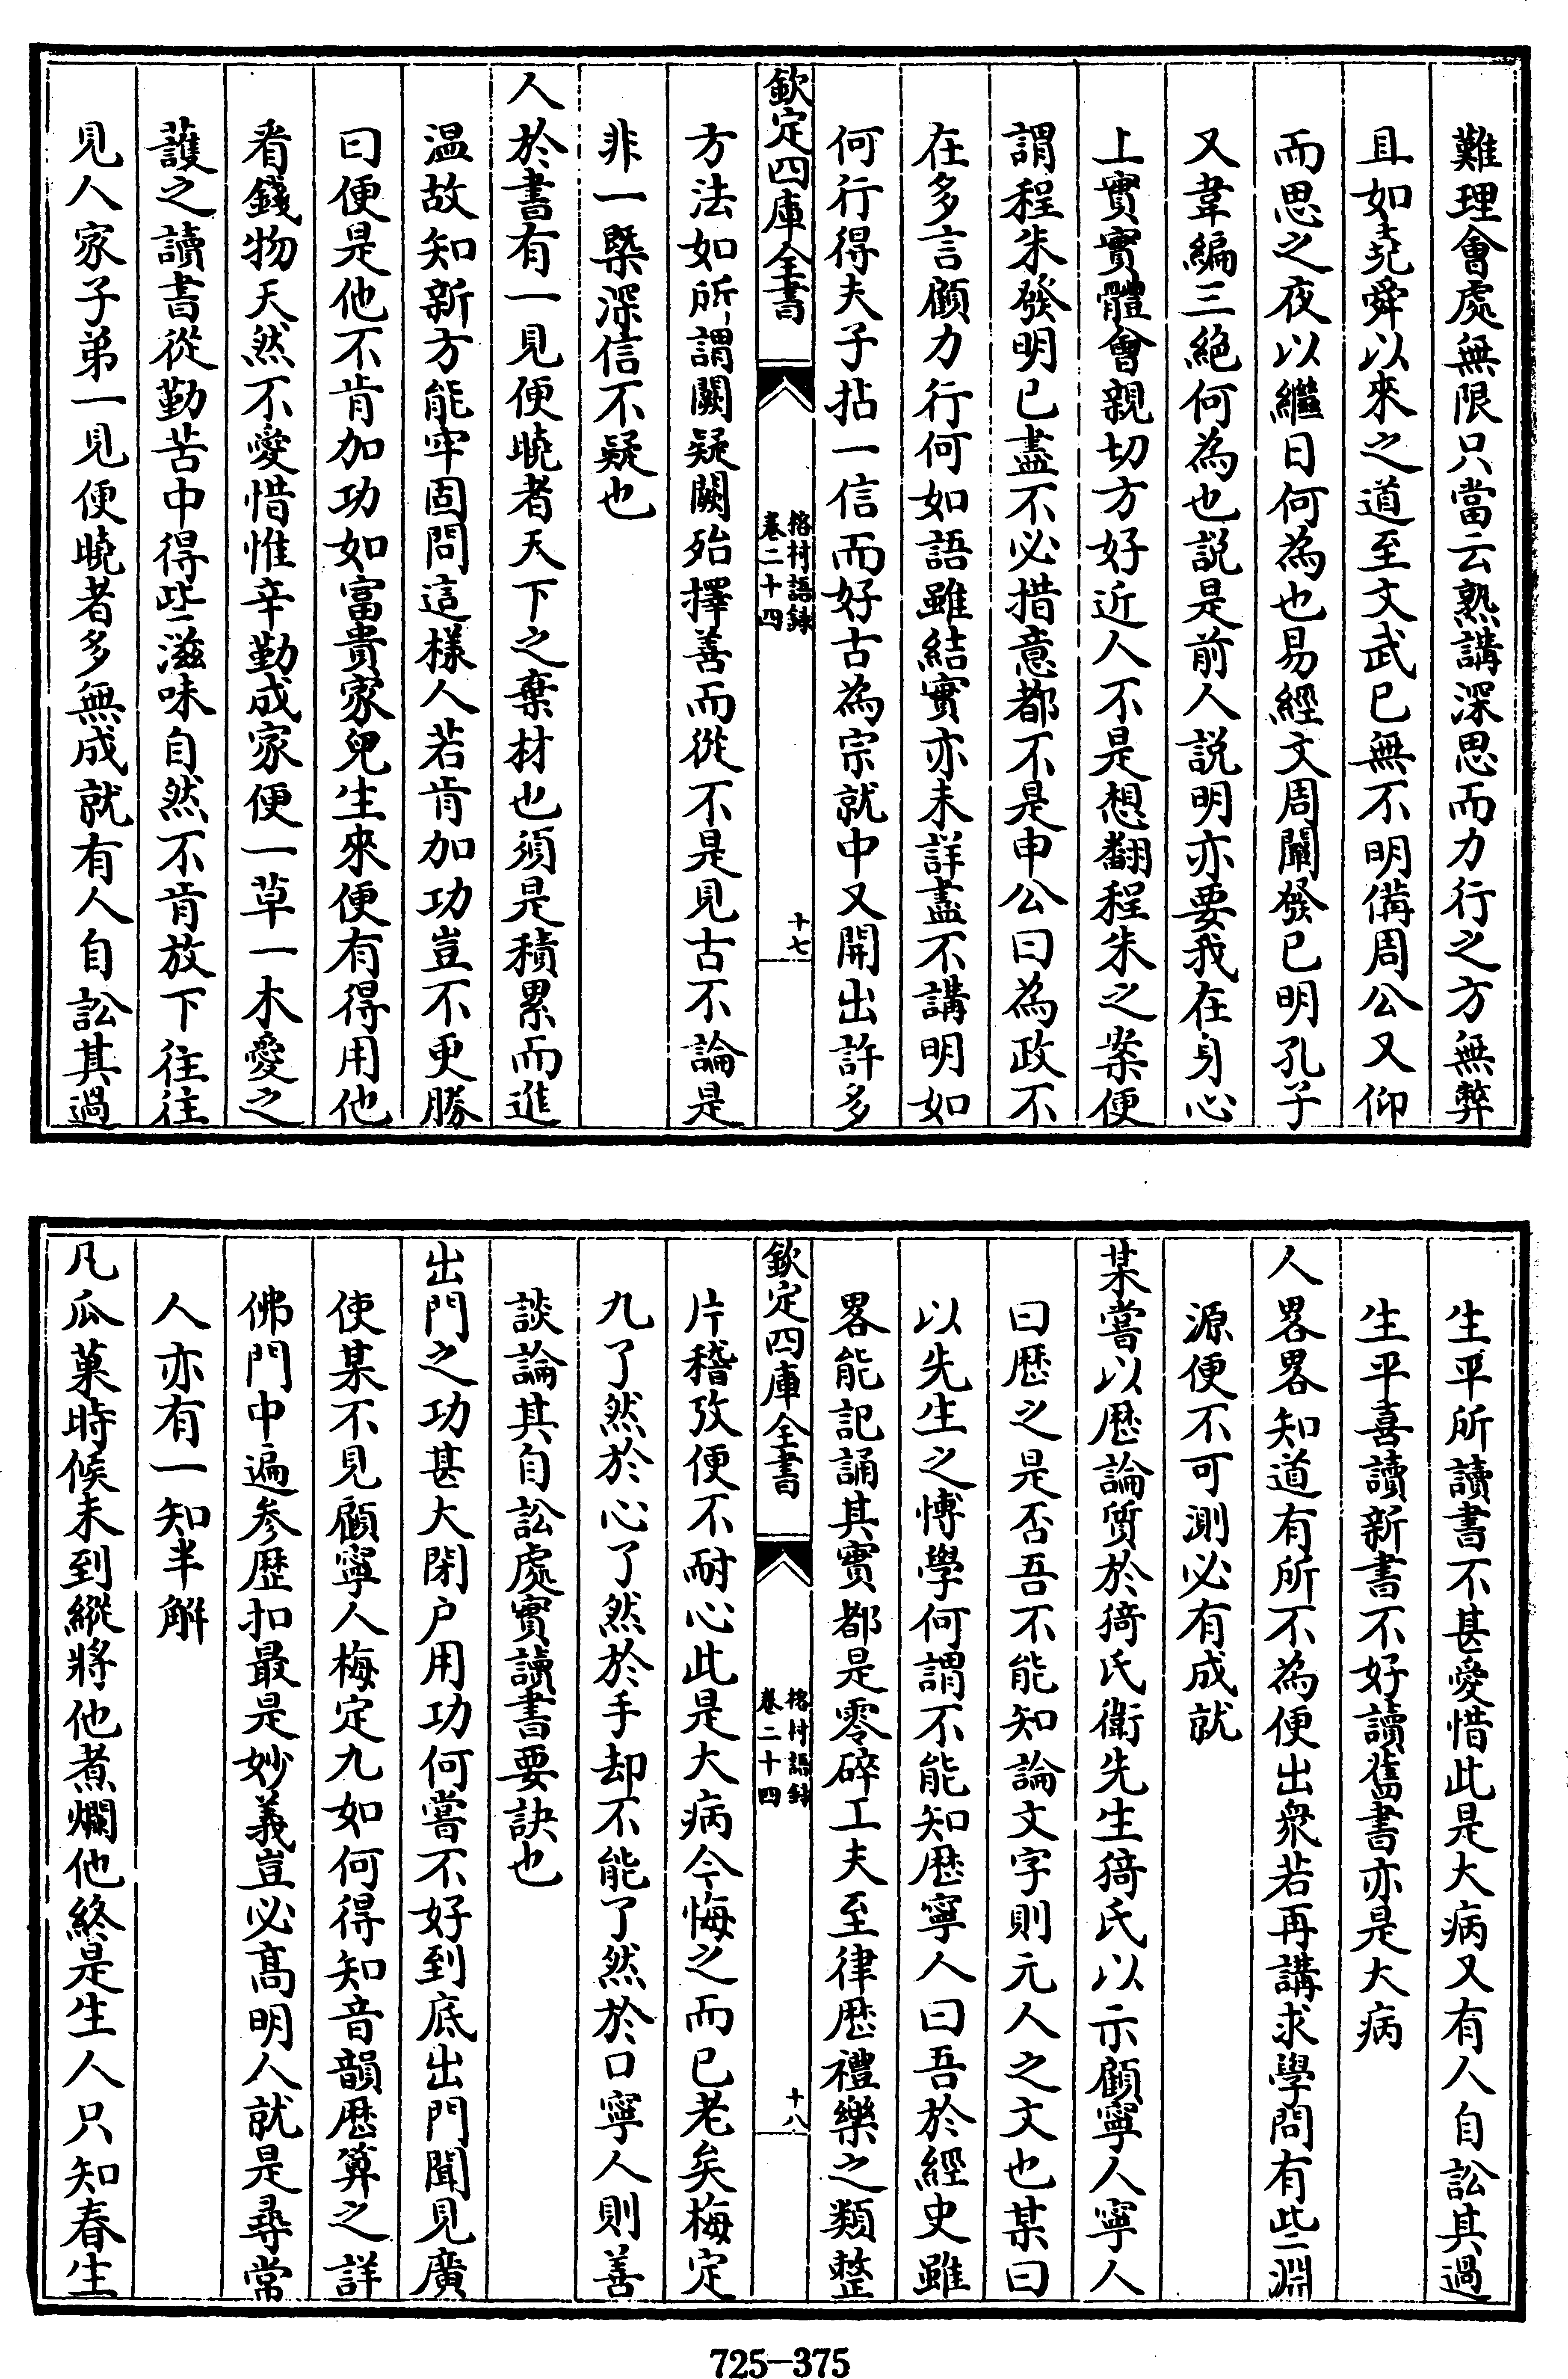 難理會處無限只當云熟講深思而力行之方無弊
且如堯舜以來之道至文武已無不明備周公又仰
而思之夜以繼日何為也易經文周闡發已明孔子
又韋編三絕何為也説是前人説明亦要我在身心
上實實體會親切方好近人不是想翻程朱之案便
謂程朱發明已盡不必措意都不是申公曰為政不
在多言顧力行何如語雖結實亦未詳盡不講明如
何行得夫子拈一信而好古為宗就中又開出許多
欽定四庫全書
榕村語録
卷二十四
十七
方法如所謂闕疑闕殆擇善而從不是見古不論是
非一槩深信不疑也
人於書有一見便曉者天下之棄材也須是積累而進
温故知新方能牢固問這樣人若肯加功豈不更勝
曰便是他不肯加功如富貴家兒生來便有得用他
看錢物天然不愛惜惟辛勤成家便一草一木愛之
護之讀書從勤苦中得些滋味自然不肯放下往往
見人家子弟一見便曉者多無成就有人自訟其過
生平所讀書不甚愛惜此是大病又有人自訟其過
生平喜讀新書不好讀舊書亦是大病
人畧畧知道有所不為便出衆若再講求學問有些淵
源便不可測必有成就
某嘗以歴論質於猗氏衛先生猗氏以示顧寧人寧人
曰歴之是否吾不能知論文字則元人之文也某曰
以先生之博學何謂不能知歴寧人曰吾於經史雖
畧能記誦其實都是零碎工夫至律歴禮樂之類整
欽定四庫全書
榕村語録
卷二十四
十八
片稽攷便不耐心此是大病今悔之而已老矣梅定
九了然於心了然於手却不能了然於口寧人則善
談論其自訟處實讀書要訣也
出門之功甚大閉户用功何嘗不好到底出門聞見廣
使某不見顧寧人梅定九如何得知音韻歴算之詳
佛門中遍参歴扣最是妙義豈必高明人就是尋常
人亦有一知半解
凡瓜菓時候未到縱將他煮爛他終是生人只知春生
725-375